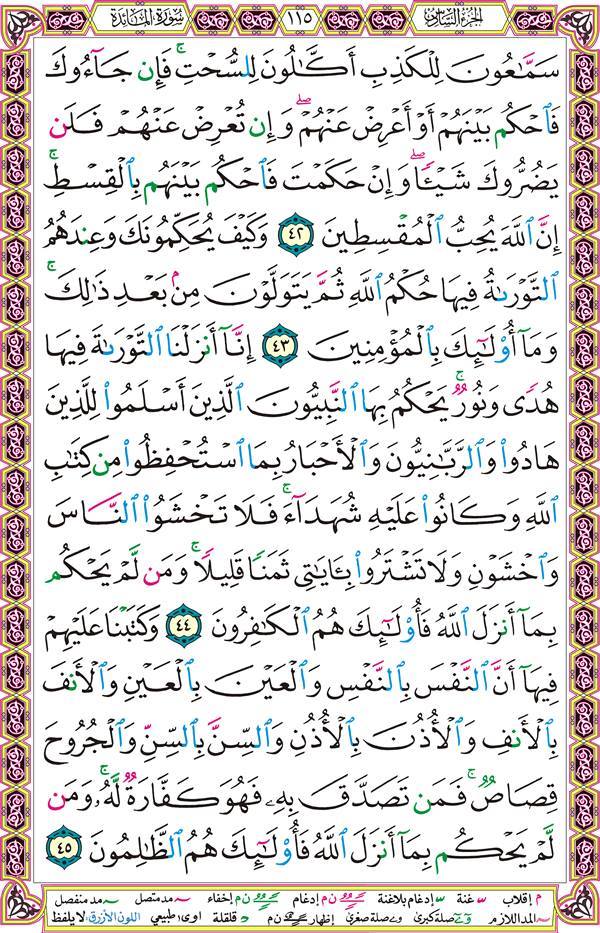 الجزء السادس ١١٥ سورة المائدة
سَمَّٰعُونَ لِلْكَذِبِ أَكَّٰلُونَ لِلسُّحْتِ ۚ فَإِن جَآءُوكَ
فَٱحْكُم بَيْنَهُمْ أَوْ أَعْرِضْ عَنْهُمْ ۖ وَإِن تُعْرِضْ عَنْهُمْ فَلَن
يَضُرُّوكَ شَيْـًٔا ۖ وَإِنْ حَكَمْتَ فَٱحْكُم بَيْنَهُم بِٱلْقِسْطِ ۚ
إِنَّ ٱللَّهَ يُحِبُّ ٱلْمُقْسِطِينَ ٤٢ وَكَيْفَ يُحَكِّمُونَكَ وَعِندَهُمُ
ٱلتَّوْرَىٰةُ فِيهَا حُكْمُ ٱللَّهِ ثُمَّ يَتَوَلَّوْنَ مِنۢ بَعْدِ ذَٰلِكَ ۚ
وَمَآ أُو۟لَٰٓئِكَ بِٱلْمُؤْمِنِينَ ٤٣ إِنَّآ أَنزَلْنَا ٱلتَّوْرَىٰةَ فِيهَا
هُدًى وَنُورٌ ۚ يَحْكُمُ بِهَا ٱلنَّبِيُّونَ ٱلَّذِينَ أَسْلَمُوا۟ لِلَّذِينَ
هَادُوا۟ وَٱلرَّبَّٰنِيُّونَ وَٱلْأَحْبَارُ بِمَا ٱسْتُحْفِظُوا۟ مِن كِتَٰبِ
ٱللَّهِ وَكَانُوا۟ عَلَيْهِ شُهَدَآءَ ۚ فَلَا تَخْشَوُا۟ ٱلنَّاسَ
وَٱخْشَوْنِ وَلَا تَشْتَرُوا۟ بِـَٔايَٰتِى ثَمَنًا قَلِيلًا ۚ وَمَن لَّمْ يَحْكُم
بِمَآ أَنزَلَ ٱللَّهُ فَأُو۟لَٰٓئِكَ هُمُ ٱلْكَٰفِرُونَ ٤٤ وَكَتَبْنَا عَلَيْهِمْ
فِيهَآ أَنَّ ٱلنَّفْسَ بِٱلنَّفْسِ وَٱلْعَيْنَ بِٱلْعَيْنِ وَٱلْأَنفَ
بِٱلْأَنفِ وَٱلْأُذُنَ بِٱلْأُذُنِ وَٱلسِّنَّ بِٱلسِّنِّ وَٱلْجُرُوحَ
قِصَاصٌ ۚ فَمَن تَصَدَّقَ بِهِۦ فَهُوَ كَفَّارَةٌ لَّهُۥ ۚ وَمَن
لَّمْ يَحْكُم بِمَآ أَنزَلَ ٱللَّهُ فَأُو۟لَٰٓئِكَ هُمُ ٱلظَّٰلِمُونَ ٤٥
م إقلاب غنة إدغام بلاغنة ن م إدغام ن م إخفاء مد متصل مد منفصل
المد اللازم صلة كبرى صلة صغرى إظهار ن م قلقلة اوى؛ طبيعي اللون الأزرق: لا يلفظ